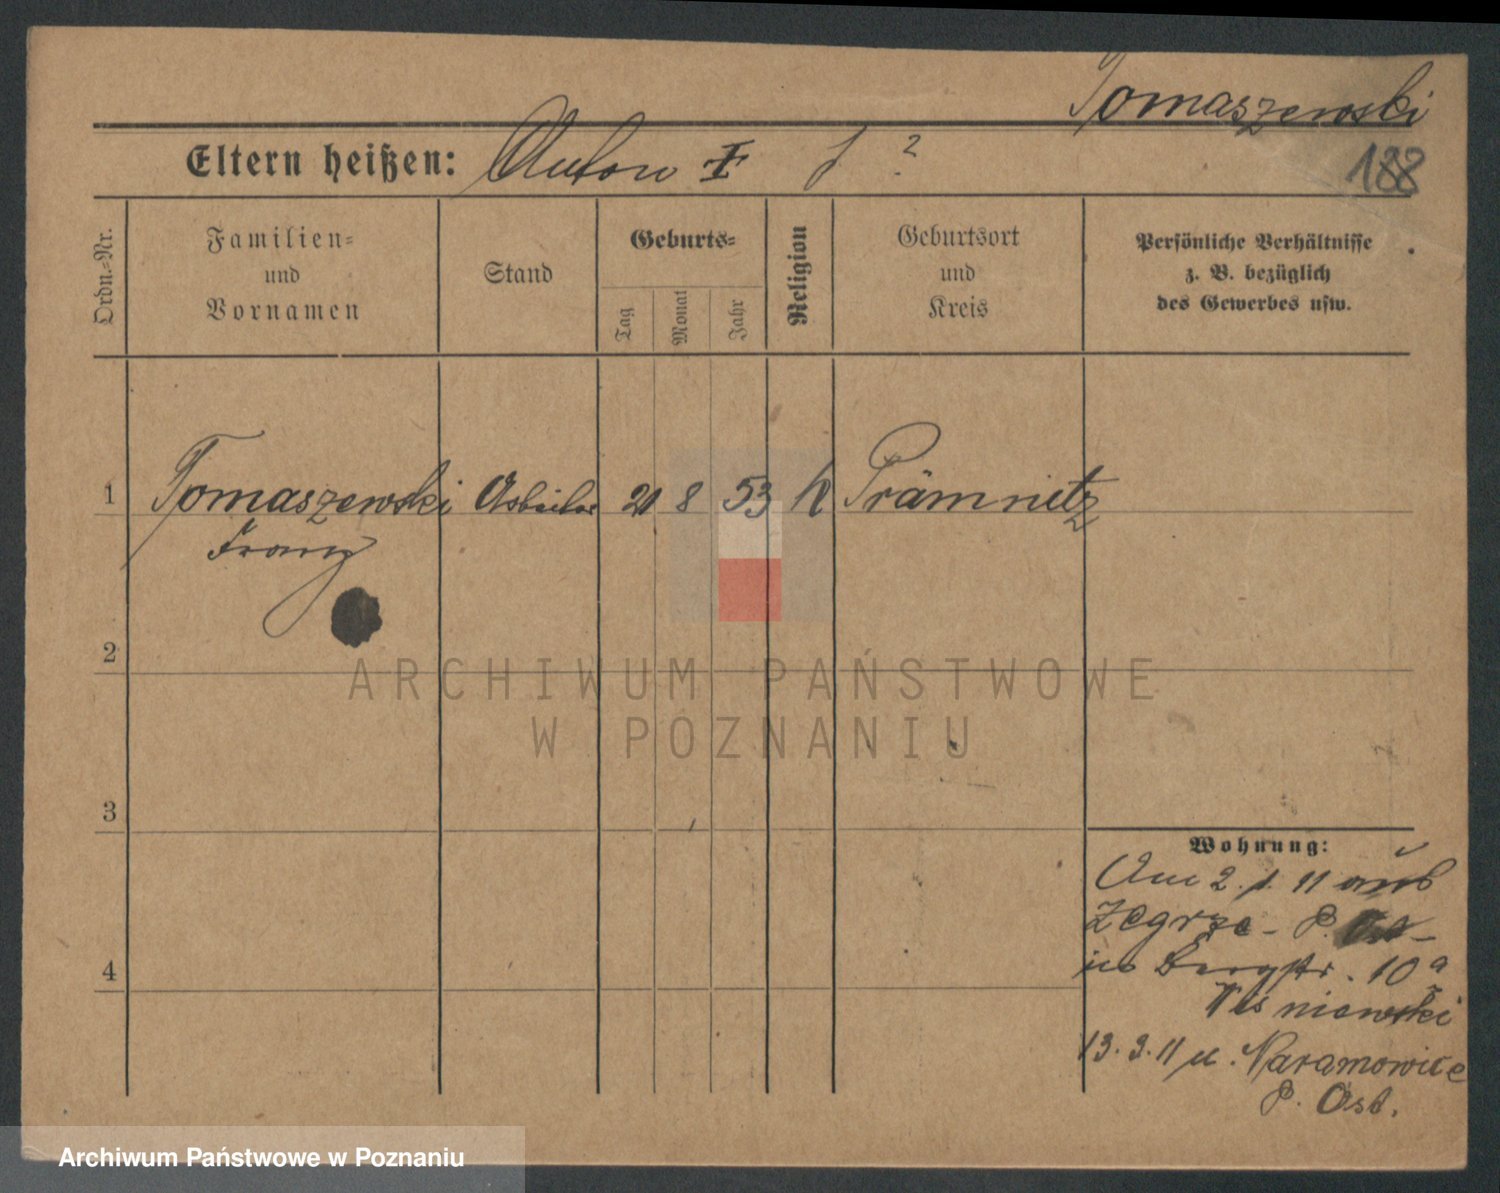 Tomaszewski
188
Eltern heißen: Anton I f ?
Ordn.-Nr.
Familien-
und
Vornamen
Stand
Geburts-
Tag
Monat
Jahr
Religion
Geburtsort
und
Kreis
Persönliche Verhältnisse
z. B. bezüglich
des Gewerbes usw.
1 Tomaszewski Arbeiter 21 8 53 k Prämnitz
Franz
2
3
4
ARCHIWUM PAŃSTWOWE
W POZNANIU
Wohnung:
Am 2. 1. 11 aus
Zegrze - P. Ost -
in Bergstr. 10a
Wisniewski
13. 3. 11 n. Naramowice
P. Ost.
Archiwum Państwowe w Poznaniu